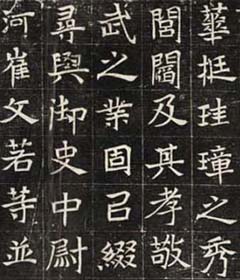 華挺珪璋之秀
閭閻及其孝敬
武之業固㠯綴
尋與御史中尉
河崔文若等並